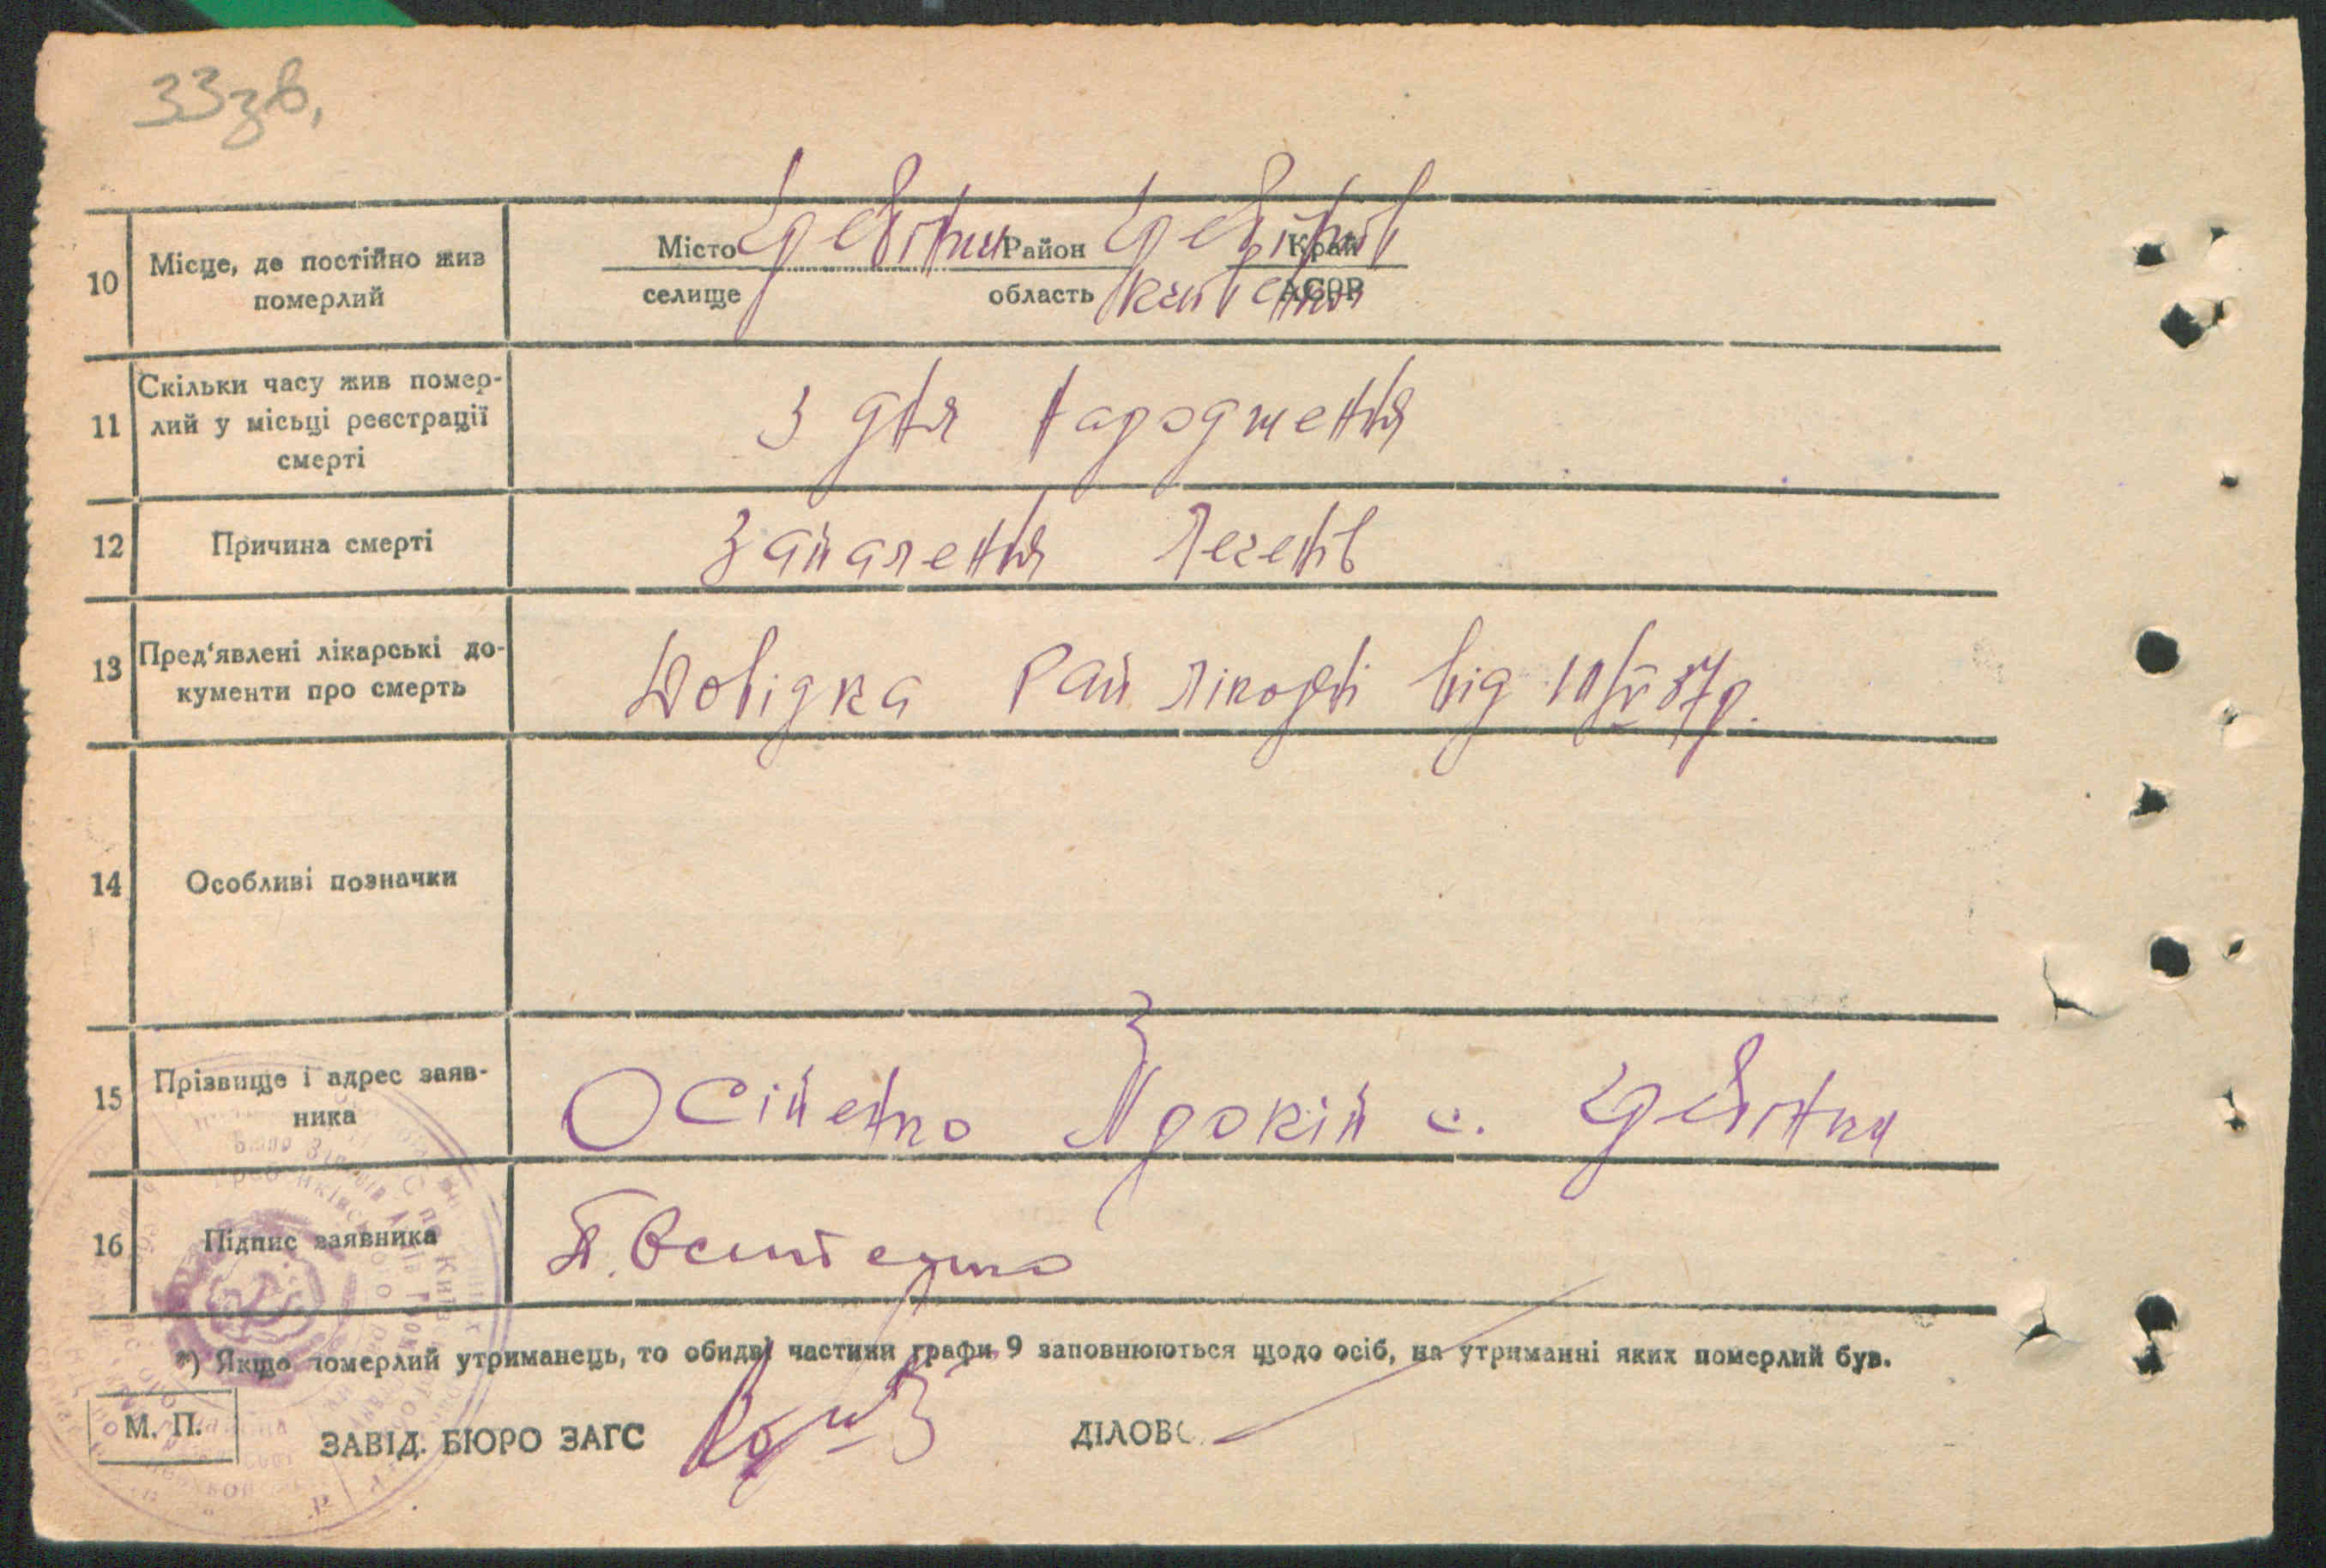 33зв.
10
Місце, де постійно жив
померлий
Місто Гребінки Район Гребінків Край
селище область Київська АСРР
11
Скільки часу жив помер-
лий у місьці реєстрації
смерті
З дня народження
12
Причина смерті
Запалення легенів
13
Пред'явлені лікарські до-
кументи про смерть
Довідка Рай лікарні від 10/V 37р.
14
Особливі позначки
15
Прізвище і адрес заяв-
ника
Осіпенко с. Гребінки
16
Підпис заявника
*) Якщо померлий утриманець, то обидві частини графи 9 заповнюються щодо осіб, на утриманні яких померлий був.
М. П.
ЗАВІД. БЮРО ЗАГС
ДІЛОВ